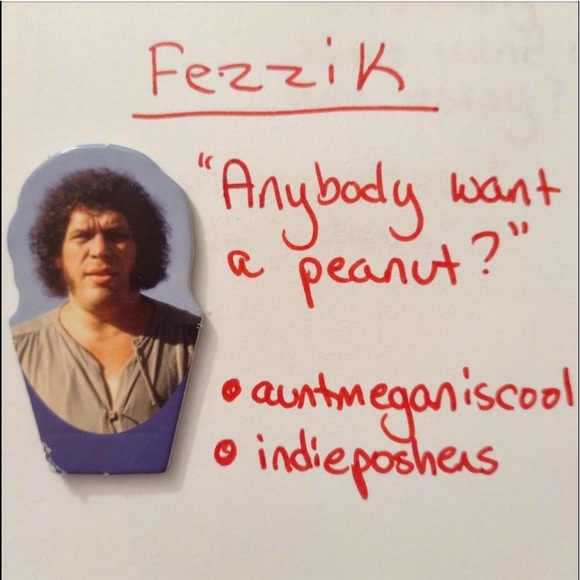 Fezzik
"Anybody want
a peanut?"
• auntmeganiscool
• indieposhers